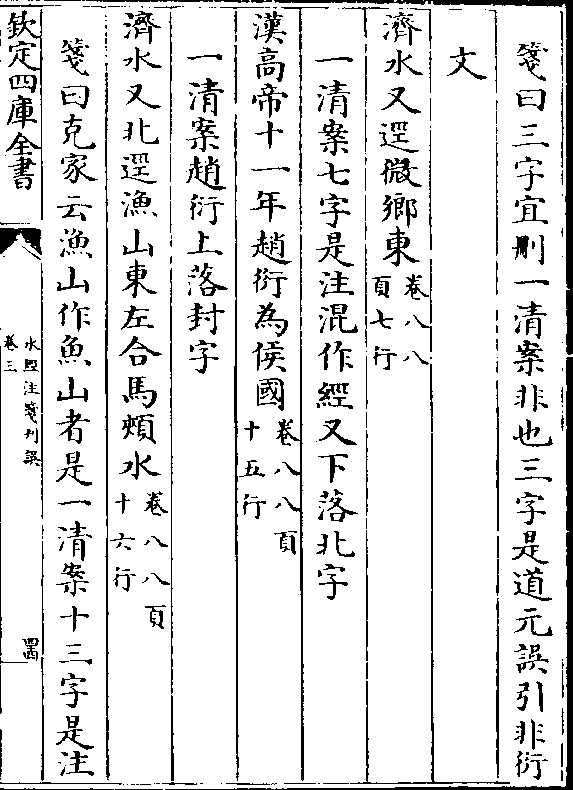 箋曰三字宜刪一清案非也三字是道元誤引非衍
文
濟水又逕微鄉東卷八八頁七行
一清案七字是注混作經又下落北字
漢高帝十一年趙衍為侯國卷八八頁十五行
一清案趙衍上落封字
濟水又北逕漁山東左合馬頰水卷八八頁十六行
箋曰克家云漁山作魚山者是一清案十三字是注
欽定四庫全書
水經注箋刊誤
卷三
四